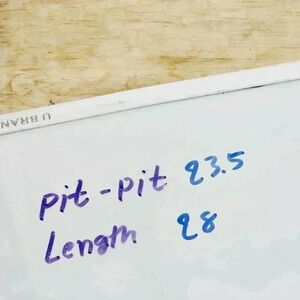 U BRAN
pit-pit 23.5
Length 28